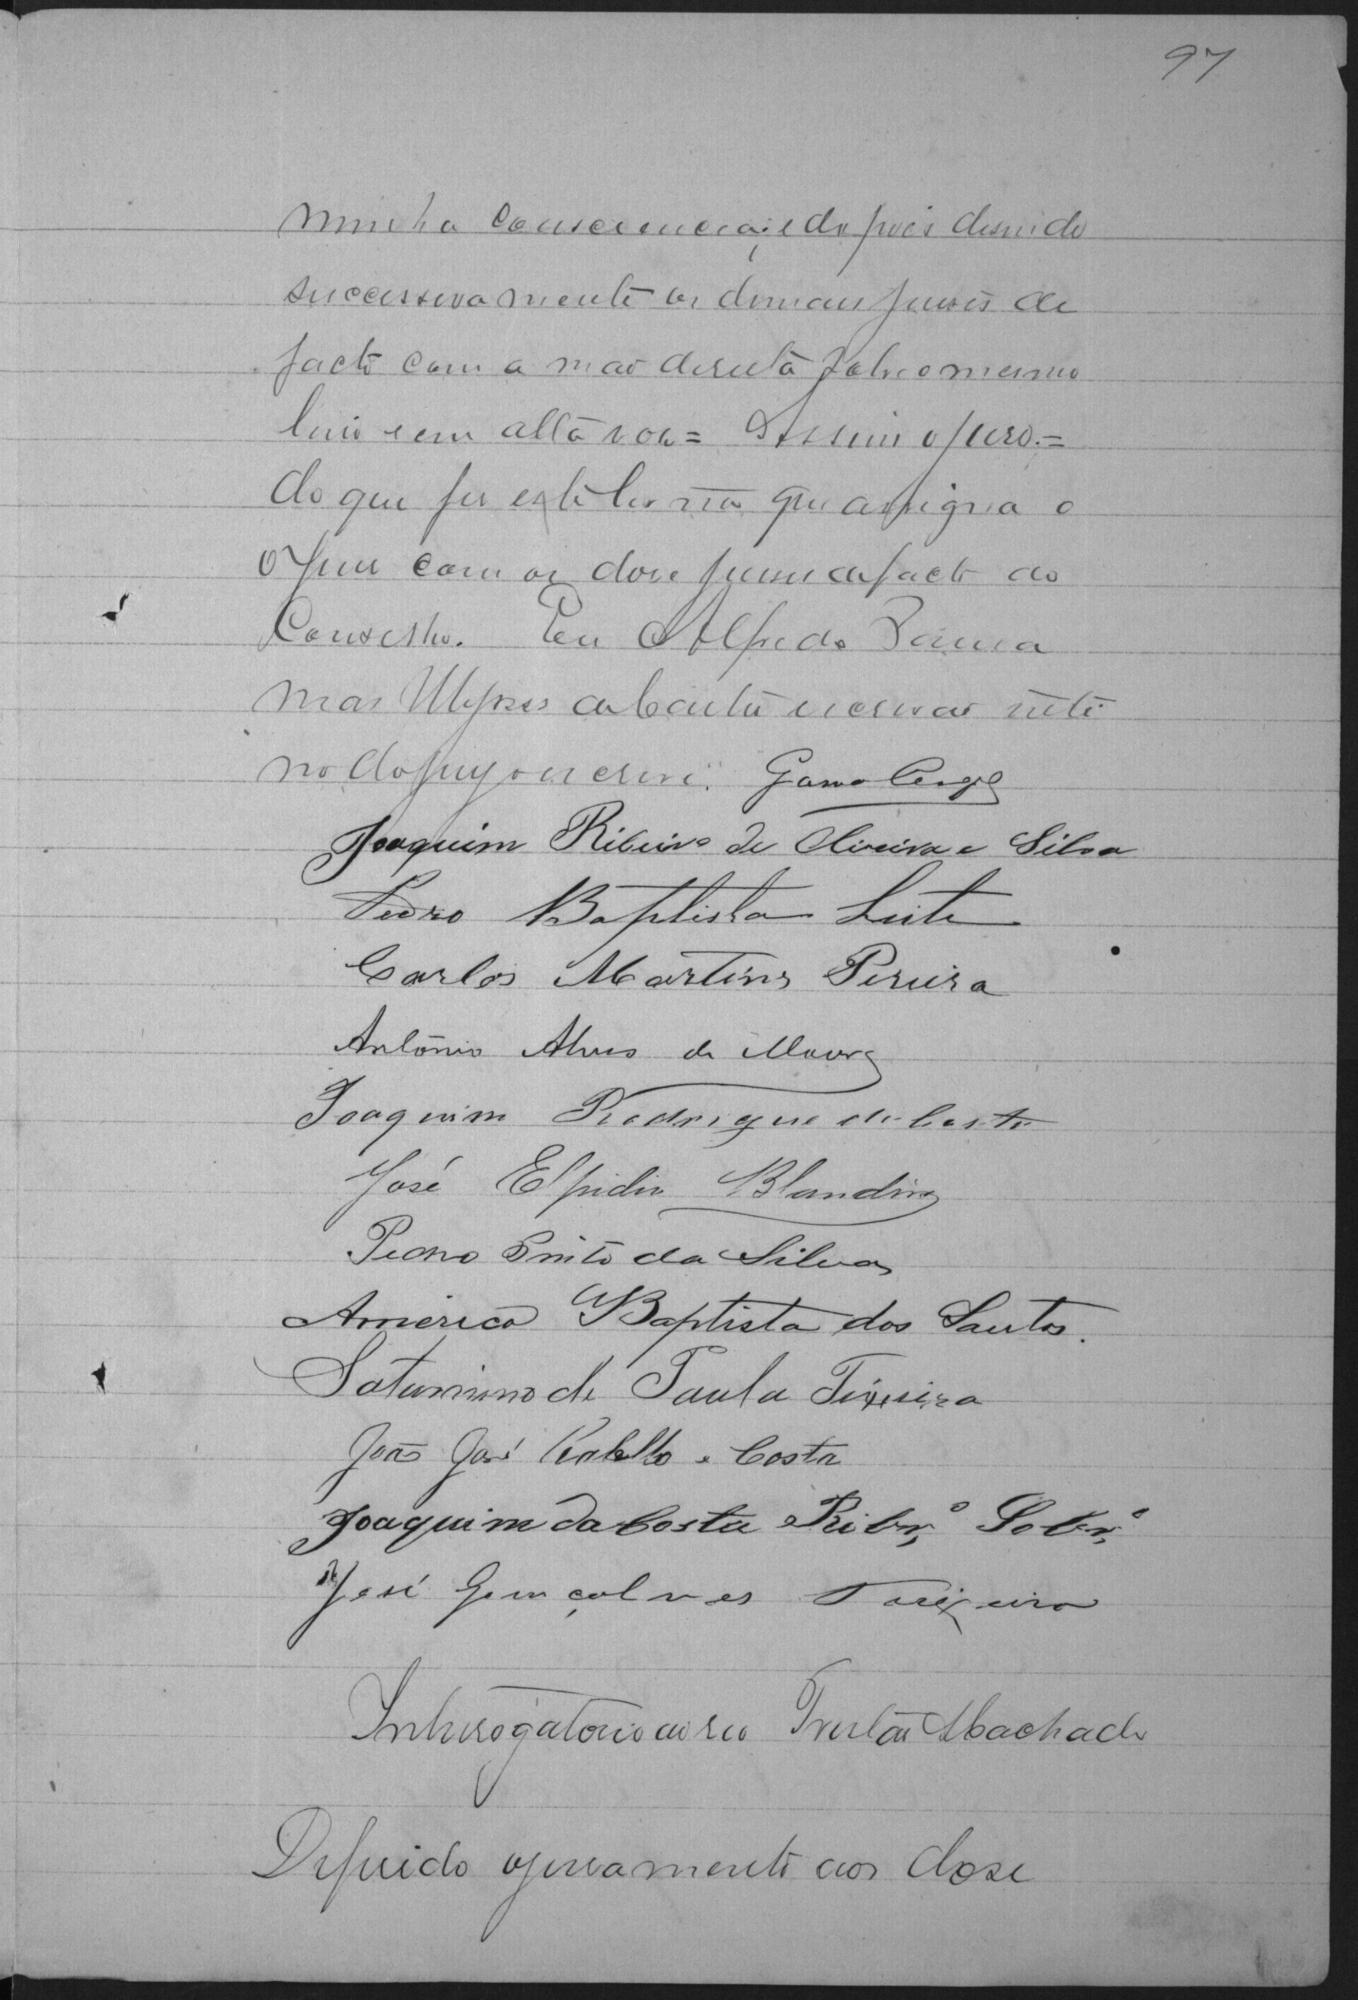 97
minha consciencia; e depois disendo
successivamente os demais juises de
facto com a mão direita sobre o mesmo
livro e em alta voz = Assim o juro. =
do que fes este termo que assigna o
o juis com os dose juises de facto do
Conselho. Eu Alfredo
mas Ulysses da Costa escrivão inte
no do jury o escrevi. Gama Cerq
Joaquim Ribeiro de Oliveira e Silva
Pedro Baptista Leite
Carlos Martins Pereira
Antônio Alves de Moura
Joaquim Rodrigue da Costa
José Elpidio Blandino
Pedro Pinto da Silva
Americo Baptista dos Santos.
Saturnino de Paula Teixeira
João José Rabello e Costa
Joaquim da Costa Ribrº Sobrº
José Gonçalves Teixeira
Interrogatorio ao reo Tristão Machado
Deferido o juramento aos dose